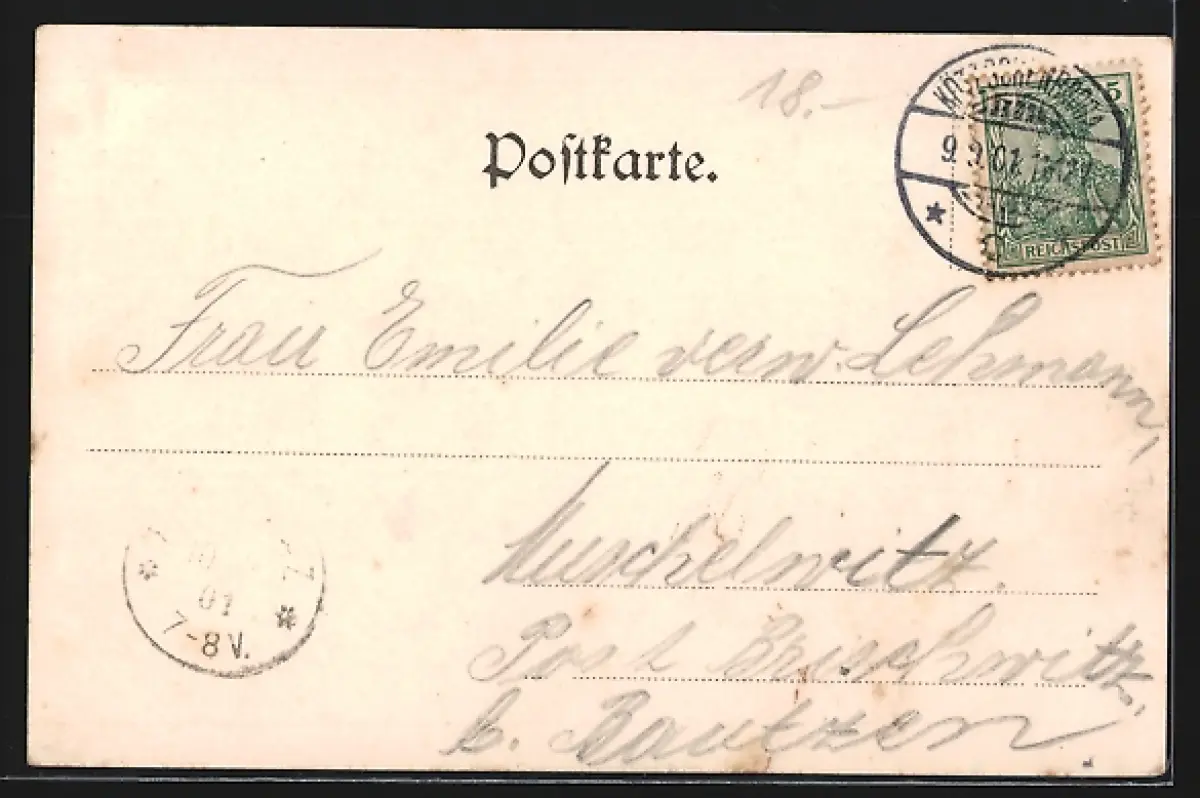 18.-
Postkarte.
9.9.01.
5
REICHSPOST
Frau Emilie verw. Lehmann,
Muschelwitz.
Post Brischwitz,
b. Bautzen
10
01
7-8V.